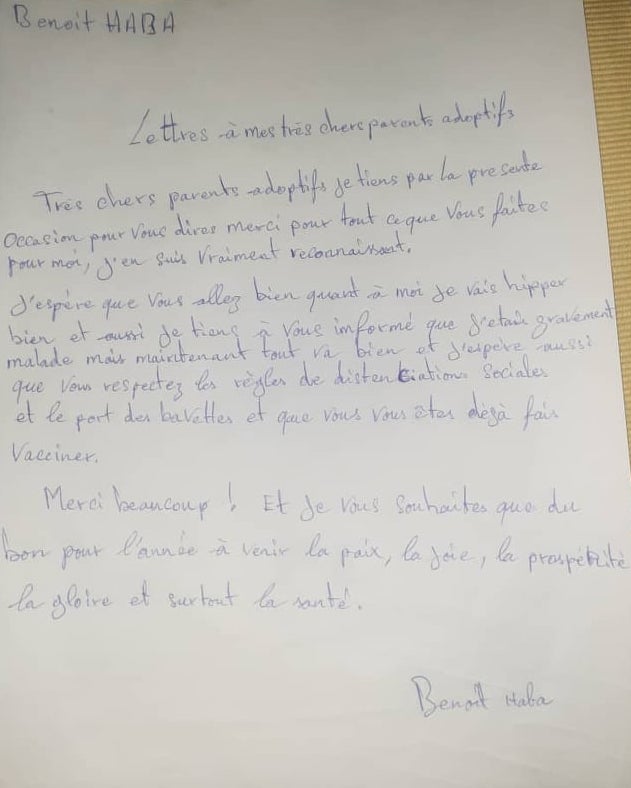 Benoit HABA
Lettres à mes très chers parents adoptifs
Très chers parents adoptifs je tiens par la presente
Occasion pour vous dires merci pour tout ce que vous faites
pour moi, j'en suis vraiment reconnaissant.
J'espère que vous allez bien quant à moi je vais hipper
bien et aussi je tiens à vous informé que j'etais gravement
malade mais maintenant tout va bien et j'espère aussi
que vous respectez les règles de distenciations Sociales
et le port des bavettes et que vous vous êtes dèjà fais
Vacciner.
Merci beaucoup ! Et je vous souhaites que du
bon pour l'année à venir la paix, la joie, la prospérité
la gloire et surtout la santé.
Benoit Haba